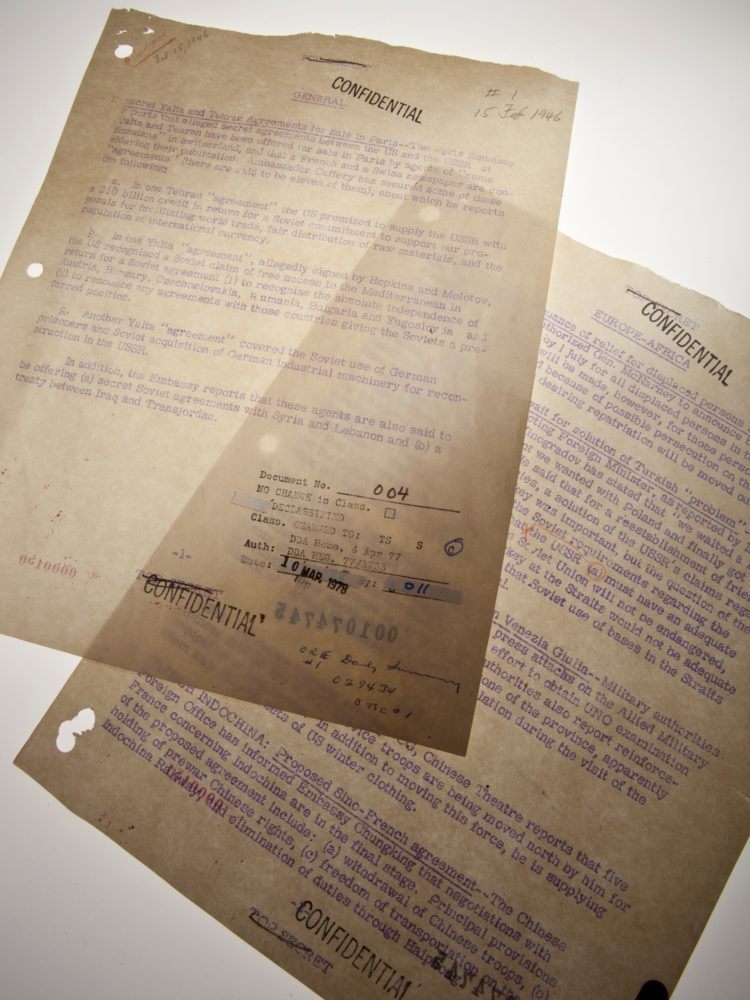 Feb 15, 1946
CONFIDENTIAL
GENERAL
# 1
15 Feb 1946
1. Secret Yalta and Tehran Agreements for Sale in Paris--The Paris Embassy
reports that alleged secret agreements between the US and the USSR at
Yalta and Tehran have been offered for sale in Paris by agents of "some
Russians" in Switzerland, and that a French and a Swiss newspaper are con-
sidering their publication. Ambassador Caffery has secured some of these
"agreements" (there are said to be eleven of them), about which he reports
the following:
a. In one Tehran "agreement" the US promised to supply the USSR with
a $10 billion credit in return for a Soviet commitment to support our pro-
posals for facilitating world trade, fair distribution of raw materials, and the
regulation of international currency.
b. In one Yalta "agreement", allegedly signed by Hopkins and Molotov,
the US recognized a Soviet claim of free access to the Mediterranean in
return for a Soviet agreement (1) to recognize the absolute independence of
Austria, Hungary, Czechoslovakia, Rumania, Bulgaria and Yugoslavia and
(2) to renounce any agreements with those countries giving the Soviets a pre-
ferred position.
c. Another Yalta "agreement" covered the Soviet use of German
prisoners and Soviet acquisition of German industrial machinery for recon-
struction in the USSR.
In addition, the Embassy reports that these agents are also said to
be offering (a) secret Soviet agreements with Syria and Lebanon and (b) a
treaty between Iraq and Transjordan.
Document No. 004
NO CHANGE in Class.
DECLASSIFIED
Class. CHANGED TO: TS S C
DDA Memo, 4 Apr 77
Auth: DDA REG. 77/1763
Date: 10 MAR 1978 By: 011
-1-
0000150
CONFIDENTIAL
001074745
ORE Daily Summary
#1
029434
TOP SECRET
CONFIDENTIAL
EUROPE-AFRICA
uance of relief for displaced persons
uthorized Gen. McNarney to announce
by 1 July for all displaced persons in
will be made, however, for those pers
d because of possible persecution on th
desiring repatriation will be moved o
wait for solution of Turkish "problem"
cting Foreign Minister, as reported by
nogradov has stated that "we waited a
nt we wanted with Poland and finally got
e said that for a reestablishment of frie
ies, a solution of the USSR's claims rega
key was important, but the question of the
the Soviet requirements regarding the
at the USSR (a) must have an adequate
e Soviet Union will not be endangered,
key at the Straits would not be adequate
that Soviet use of bases in the Straits
n Venezia Giulia--Military authorities
press attacks on the Allied Military
effort to obtain UNO examination
uthorities also report reinforce-
one of the province, apparently
lation during the visit of the
Chinese Theatre reports that five
vice troops are being moved north by him for
in addition to moving this force, he is supplying
ects of US winter clothing.
INDOCHINA: Proposed Sino-French agreement--The Chinese
Foreign Office has informed Embassy Chungking that negotiations with
France concerning Indochina are in the final stage. Principal provisions
of the proposed agreement include: (a) withdrawal of Chinese troops, (b)
holding of prewar Chinese rights, (c) freedom of transportation on the
Indochina Railway, and elimination of duties through Haiphong.
CONFIDENTIAL
TOP SECRET